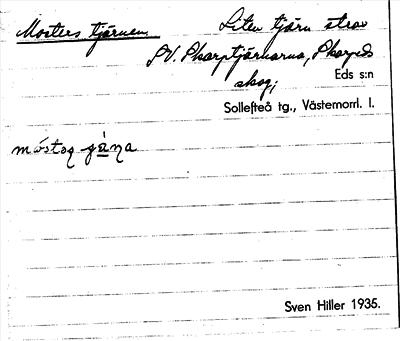 Mosters tjärnen Liten tjärn strax
SV. Skarptjärnarna, Skarpeds
skog;
Eds s:n
Sollefteå tg., Västernorrl. l.
Sven Hiller 1935.